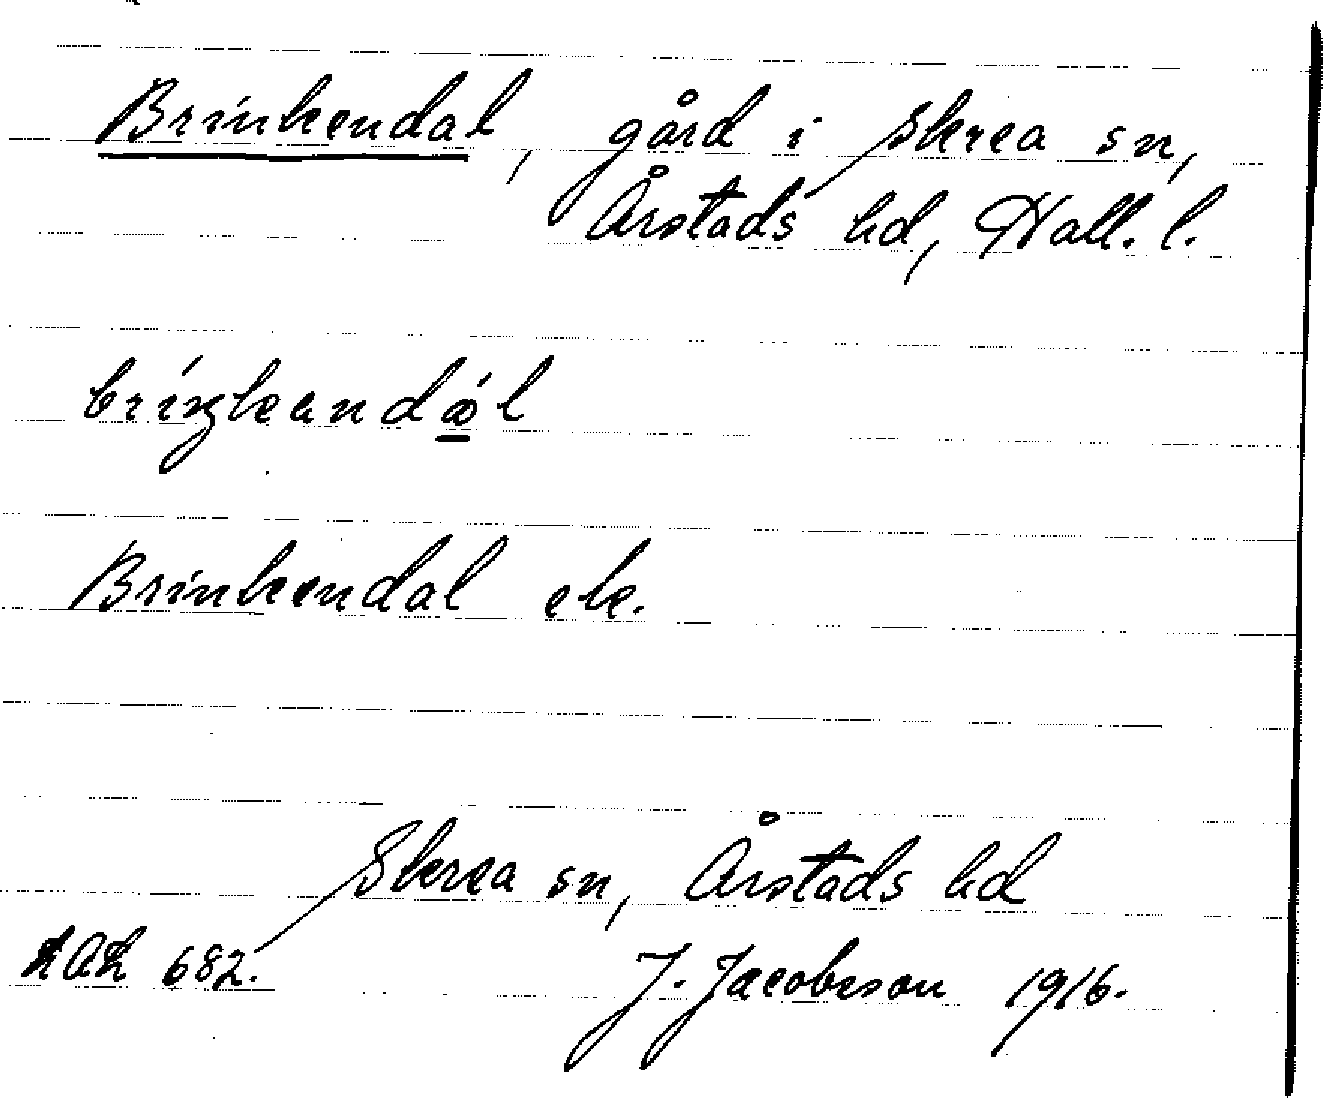 Brinkendal, gård i Skrea sn,
Årstads hd, Hall. l.
Brinkendal ek.
Skrea sn, Årstads hd
682. J. Jacobsson 1916.